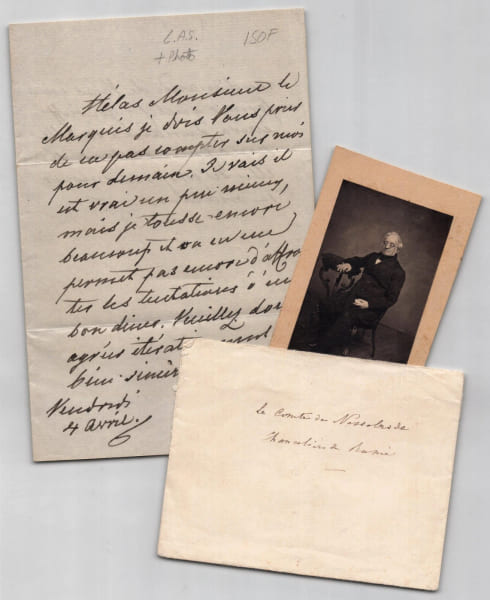 L.A.S.
+ Photo
150F
Hélas Monsieur le
Marquis je dois Vous prier
de ne pas compter sur moi
pour demain. Je vais il
est vrai un peu mieux,
mais je tousse encore
beaucoup et on ne me
permet pas encore d'affron
ter les tentations d'un
bon diner. Veuillez donc
agréer
bien sincère
Vendredi
4 Avril.
le Comte de Nesselrode
Chancelier de Russie